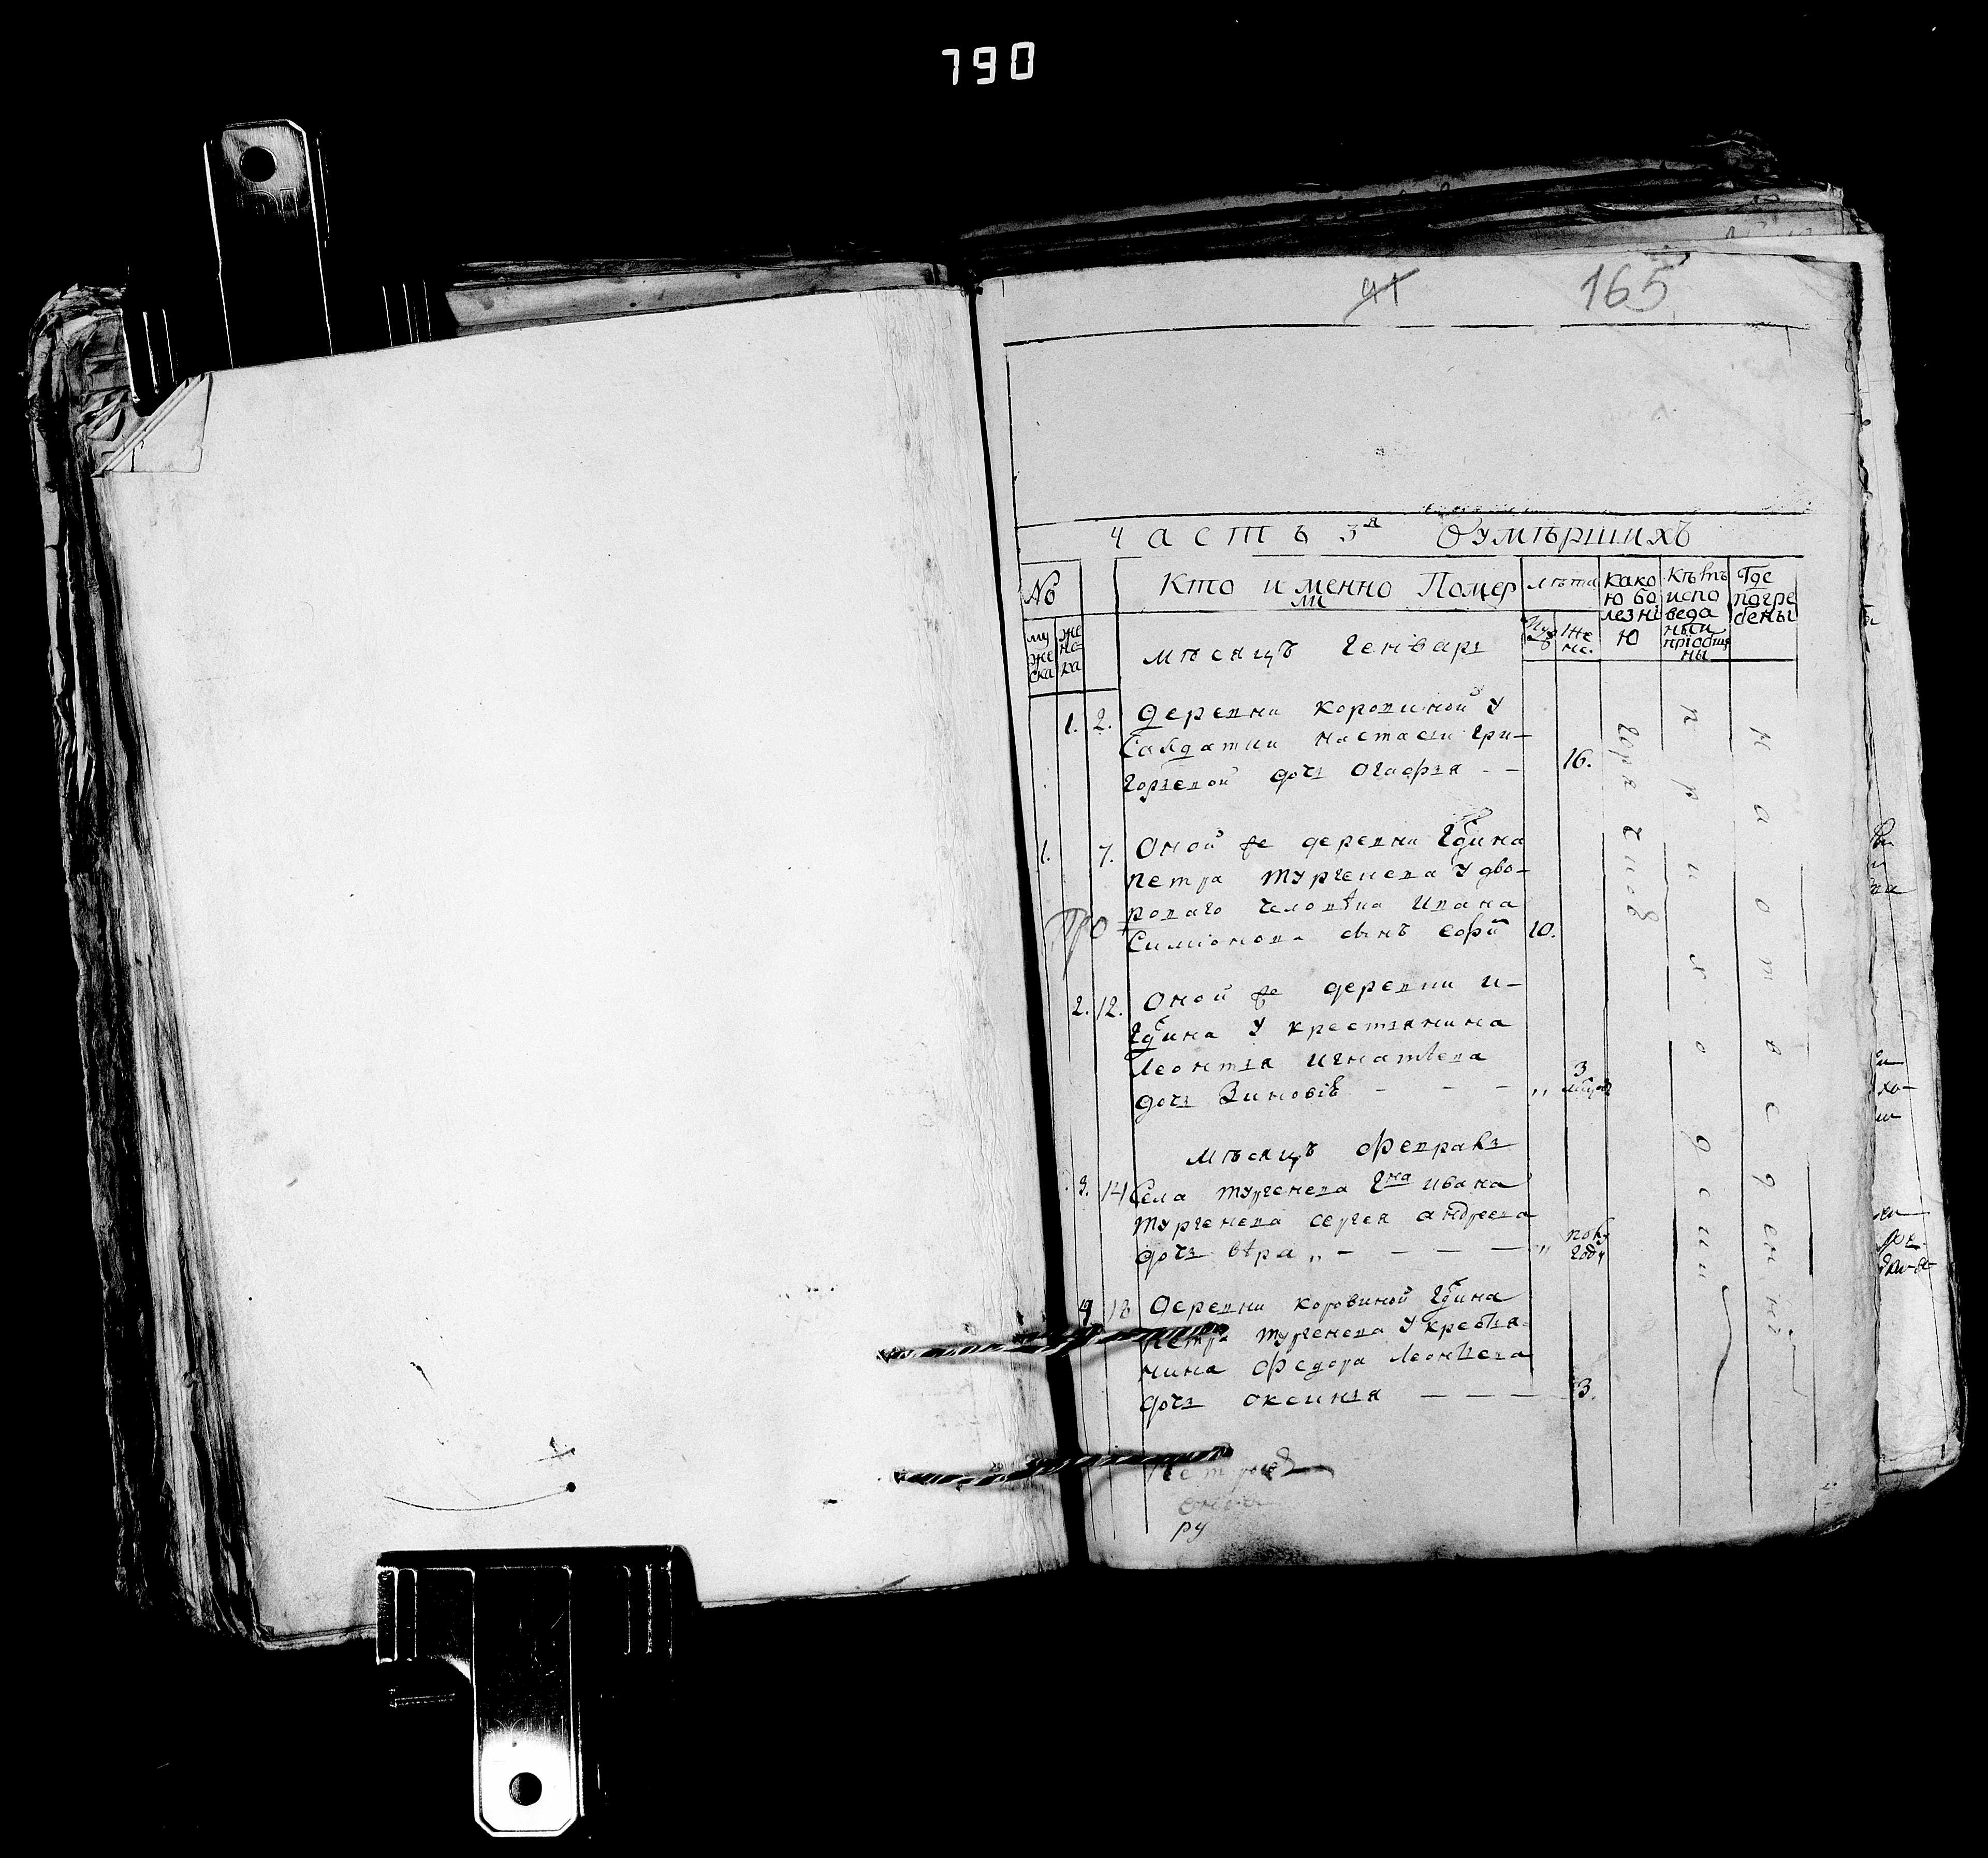 790
41
165
Часть 3я О умѣршихъ
No
Кто именно Помер
ли
лѣта
Како
ю бо
лезні
ю
Кѣмъ
испо
веда
ны и
пріобщя
ны
Где
погре
бены
му
же
ска
же
нс
ка
Муж
Же
нс.
мѣсяцъ Генварь
1. 2. Деревни Коровиной У
Салдатки Настасьи Гри-
горьевой дочь Огафья - - 16.
1. 7. Оной же деревни Гдина
Петра Тургенева У дво-
роваго человѣка Ивана
Симионова сынъ 10.
2. 12. Оной же деревни и
Гдина У крестьянина
Леонтья Игнатьева
дочь Зиновія - - - „ 3
мѣсяцъ Февраль
3. 14 Села Тургенева Гна Ивана
Тургенева Сергея Андреева
дочь вѣра „ - - - - „ полу
году
4 18 Деревни Коровиной Гдина
Петра Тургенева У крестья-
нина Федора Леонтьева
дочь Оксинья - - - 3.
горячкоӡ
приходски
на отведенной
ру